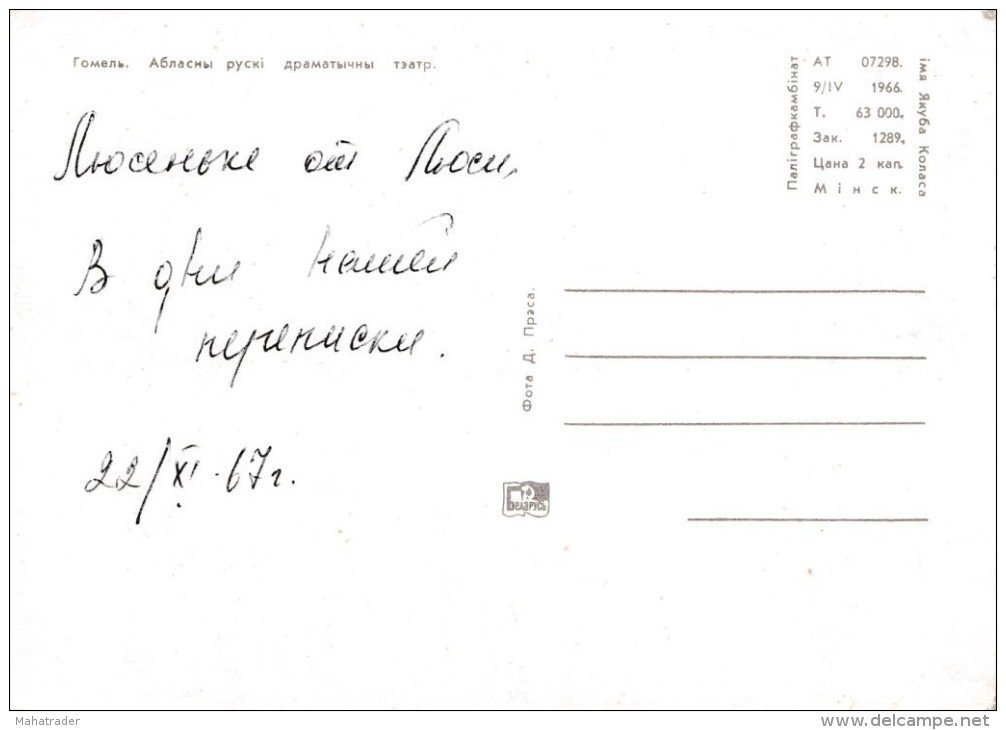 Гомель. Абласны рускі драматычны тэатр.
Люсеньке от Люси,
В дни нашей
переписки.
22/XI.67г.
Паліграфкамбінат
АТ 07298.
9/IV 1966.
Т. 63 000.
Зак. 1289.
Цана 2 кап.
Мінск.
імя Якуба Коласа
Фота Д. Прэса.
БЕЛАРУСЬ
Mahatrader
www.delcampe.net